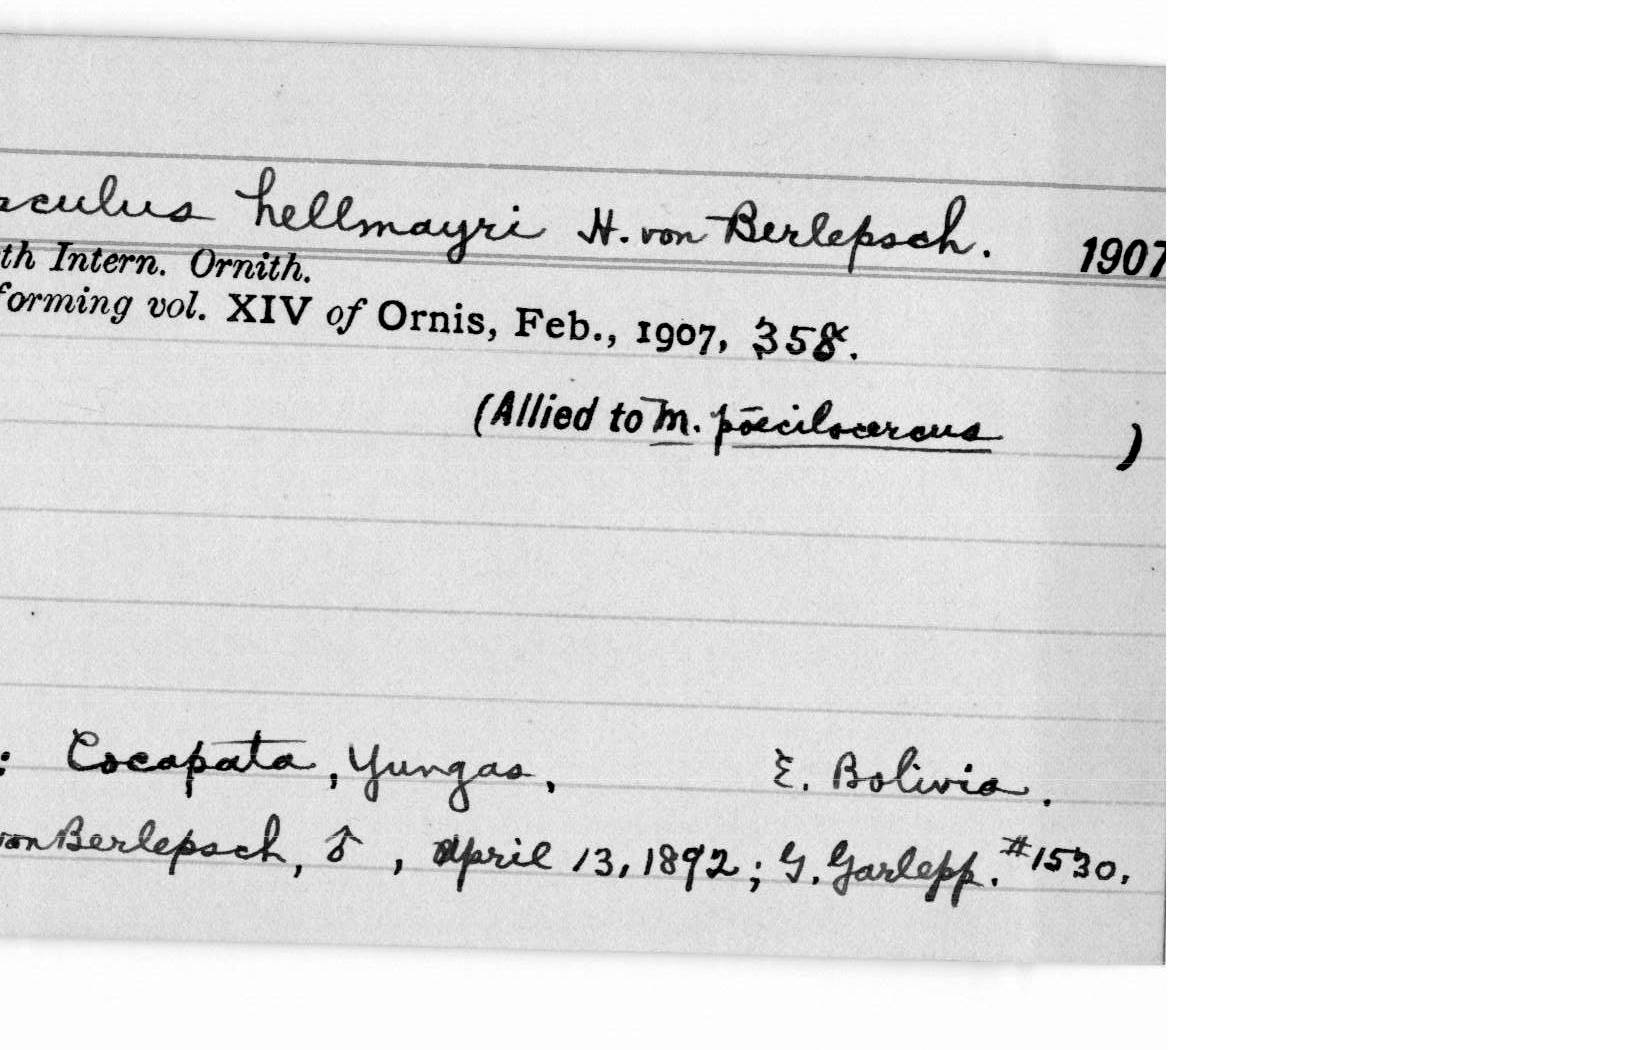 sculus hellmayri H. von Berlepsch. 1907
th Intern. Ornith.
forming vol. XIV of Ornis, Feb., 1907, 358.
(Allied to M. pœcilocercus )
: Cocapata, Yungas, E. Bolivia.
von Berlepsch, ♂, April 13, 1892; G. Garlepp. #1530.